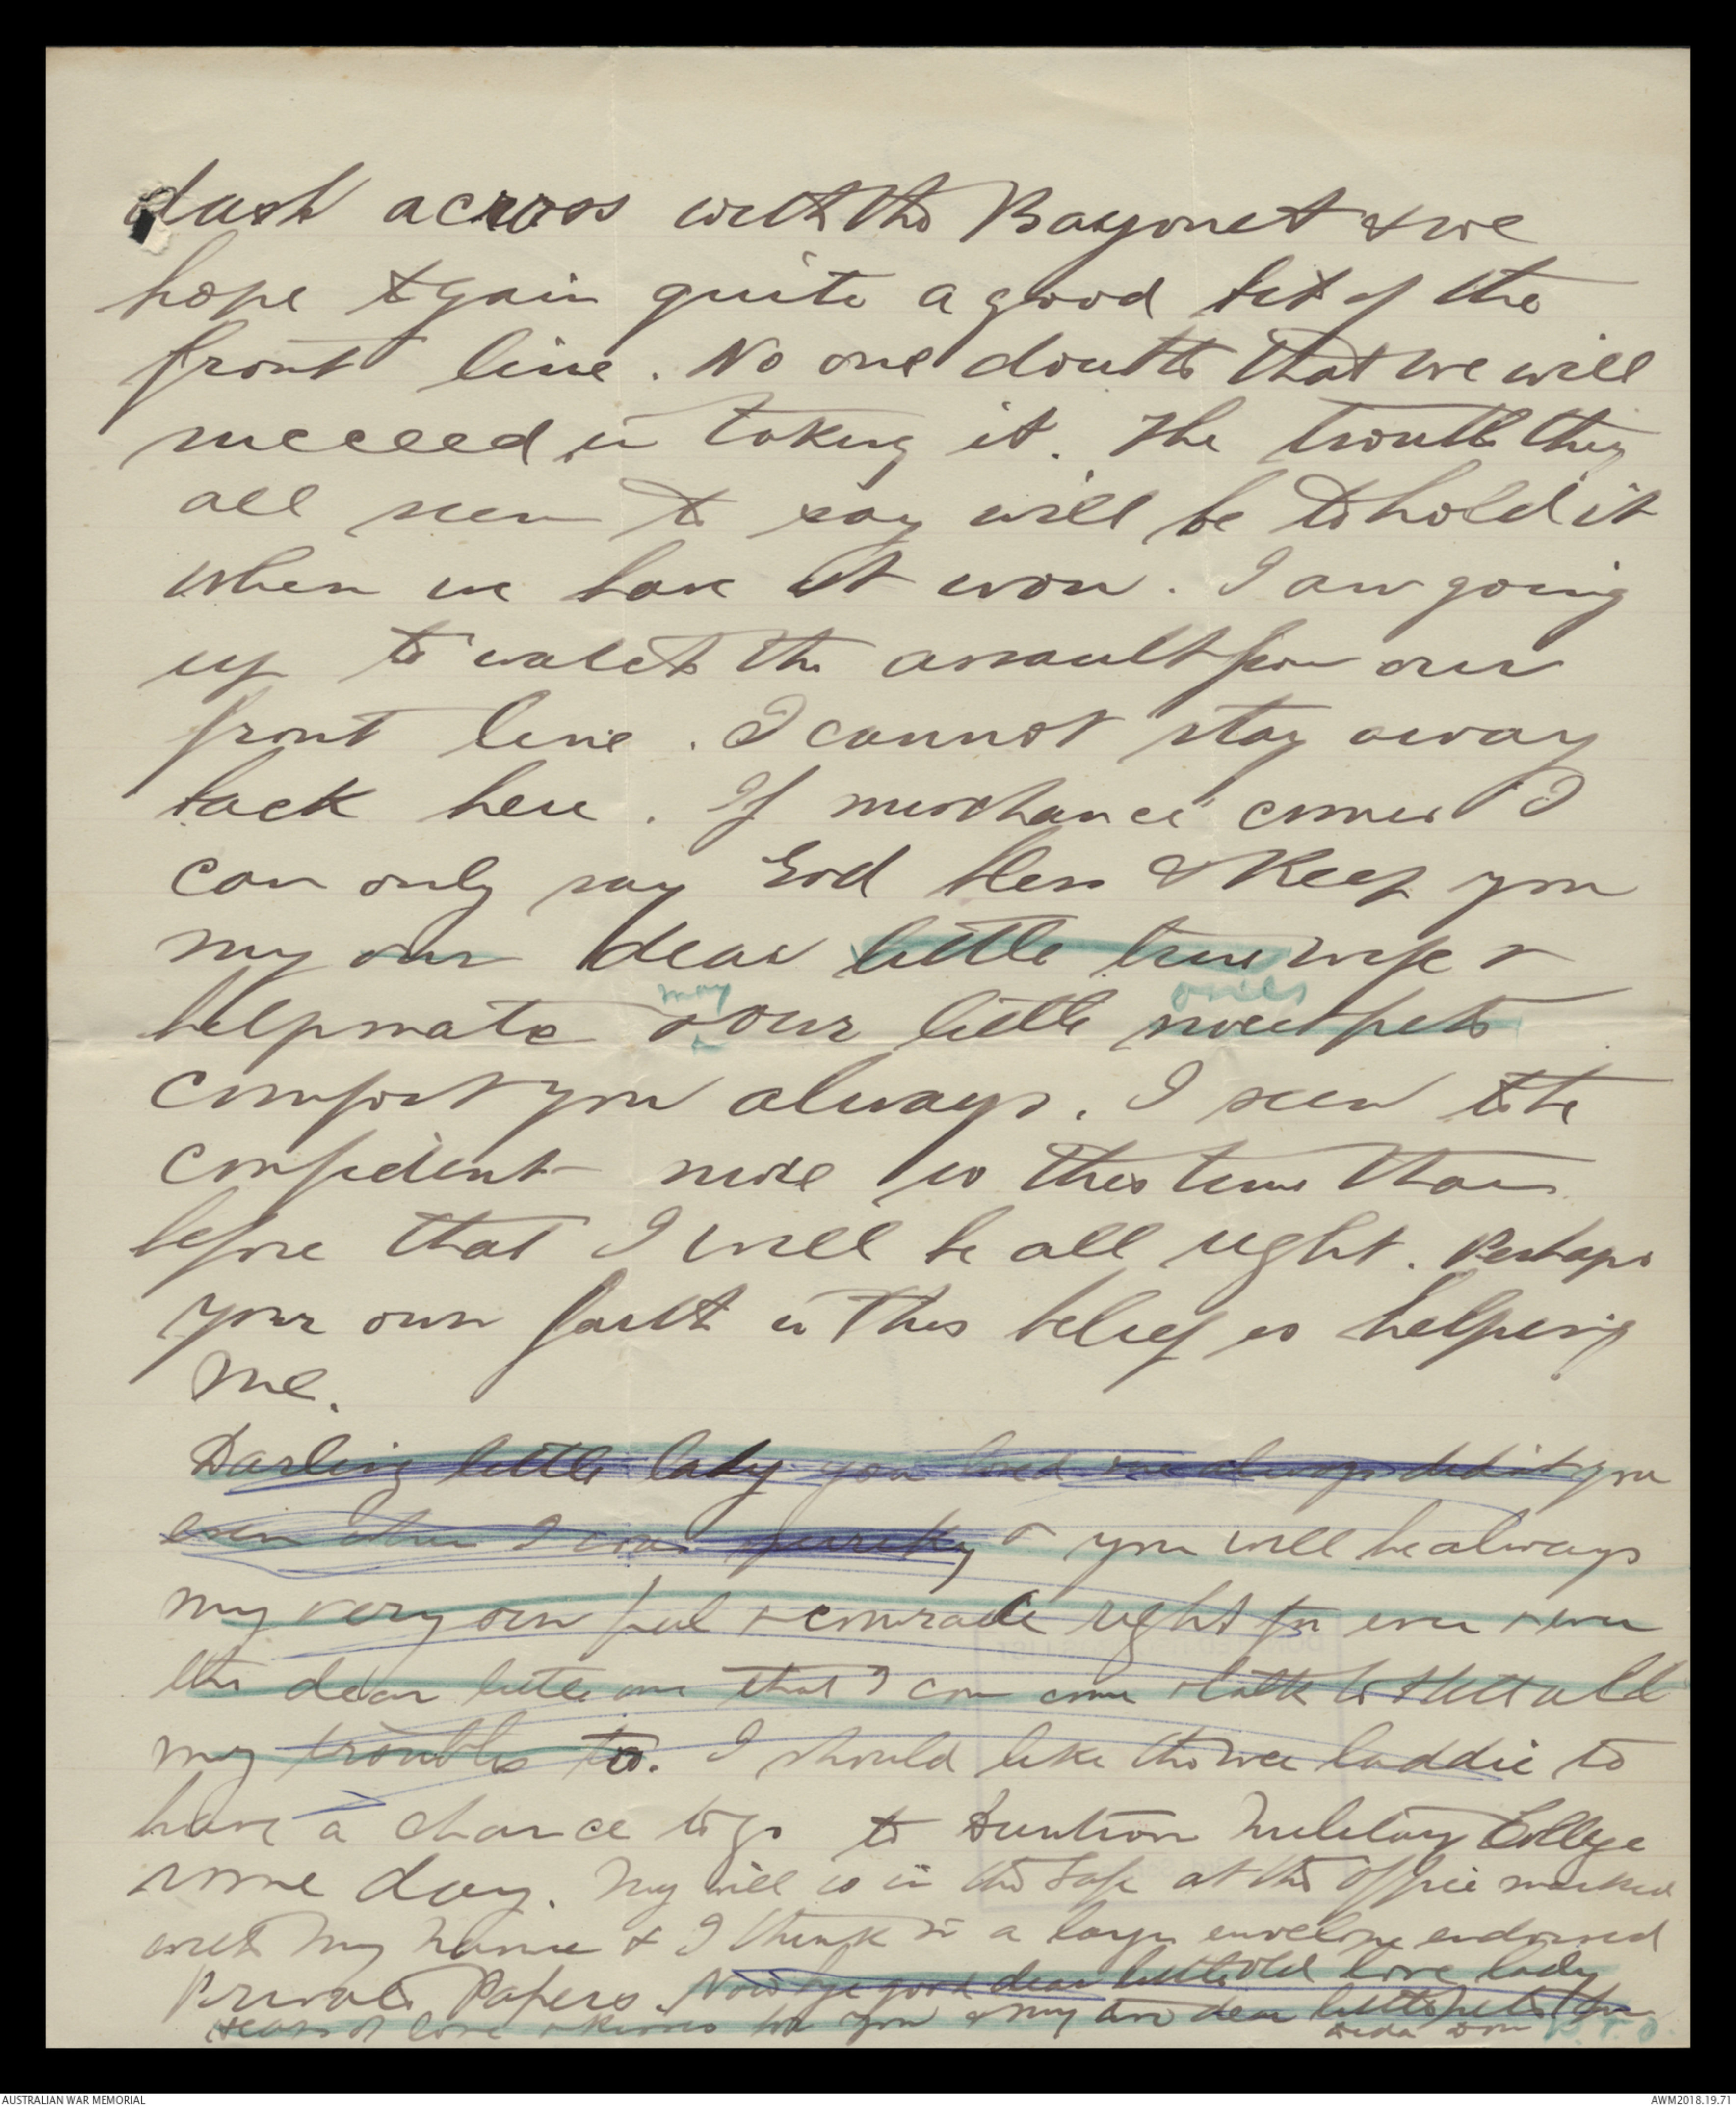 dash across with the Bayonet & we
hope to gain quite a good bit of the
front line. No one doubts that we will
succeed in taking it. The trouble they
all seem to say will be to hold it
when we have it won. I am going
up to watch the assault from our
front line. I cannot stay away
back here. If mischance comes I
can only say God bless & keep you
my own dear little true wife &
may ones
helpmate & our little sweet pets
comfort you always. I seem to be
confident more so this time than
before that I will be all right. Perhaps
your own faith in this belief is helping
me.
Darling little lady you loved me always didn't you
even when I was & you will be always
my very own pal & comrade right for ever & ever
the dear little one that I can come & talk to & tell all
my troubles to. I should like the wee laddie to
have a chance to go to Duntroon Military College
some day. My will is in the safe at the office marked
with my name & I think in a large envelope endorsed
Private Papers. Now bye good dear little old love lady
of love & kisses to you & my two dear little pets
P.T.O.
AUSTRALIAN WAR MEMORIAL
AWM2018.19.71